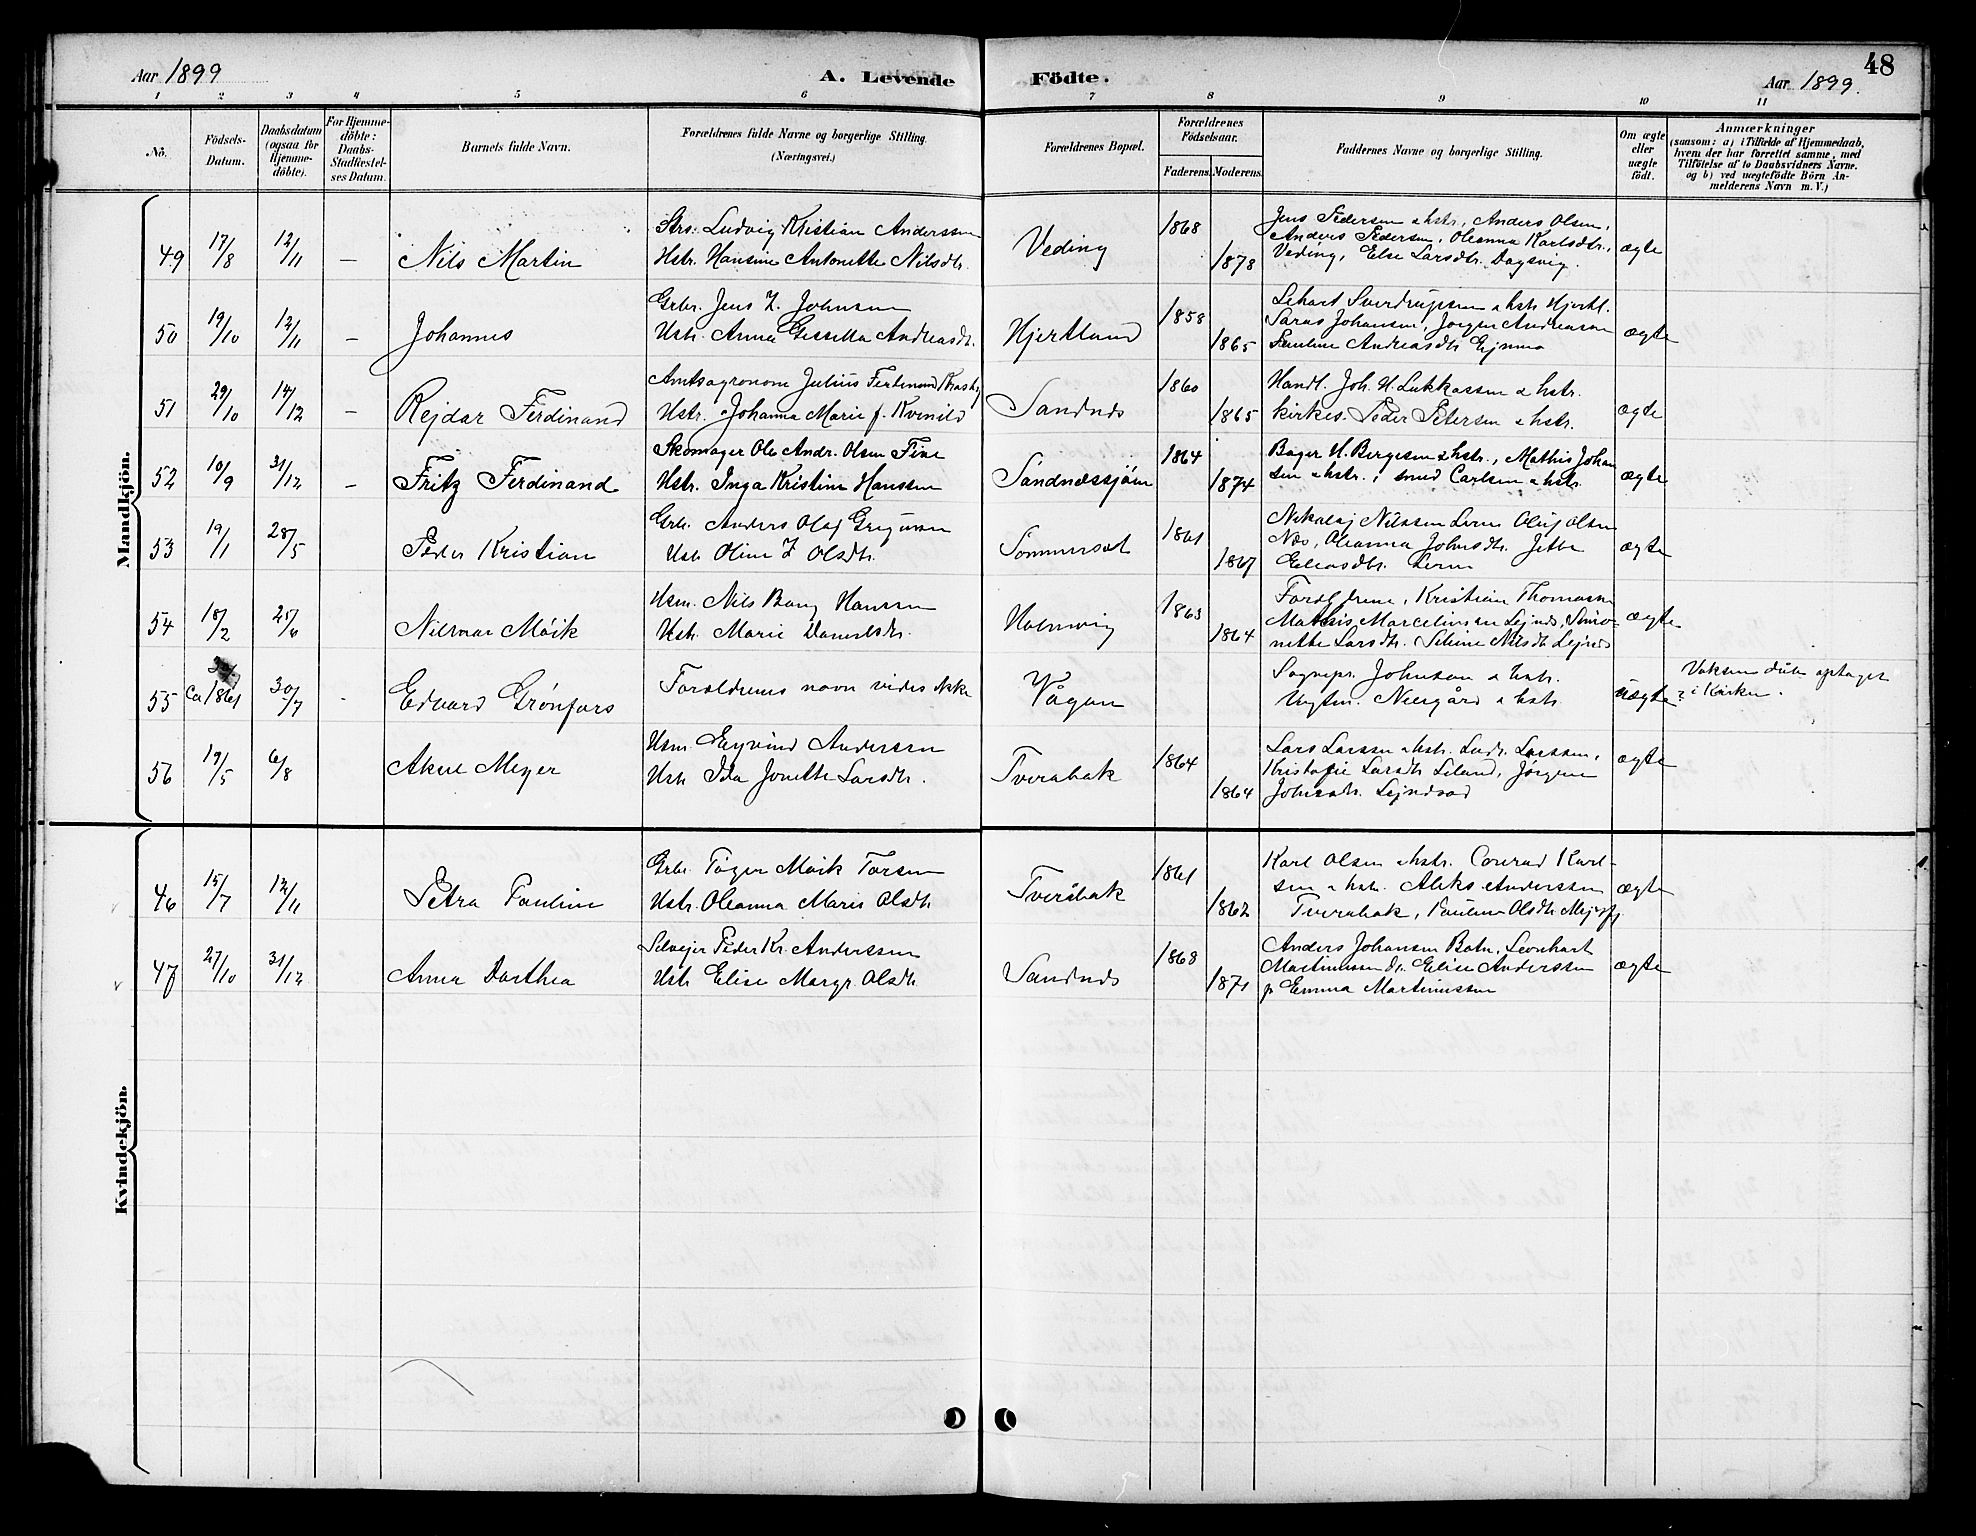 Aar 1899
A. Levende
Födte.
Aar 1899.
48
1 2 3 4 5 6 7 8 9 10 11
No.
Födsels-
Datum.
Daabsdatum
(ogsaa for
Hjemme-
döbte).
For Hjemme-
döbte:
Daabs-
Stadfæstel-
ses Datum.
Barnets fulde Navn.
Forældrenes fulde Navne og borgerlige Stilling.
(Næringsvei.)
Forældrenes Bopæl.
Forældrenes
Födselsaar.
Faderens. Moderens.
Faddernes Navne og borgerlige Stilling.
Om ægte
eller
uægte
födt.
Anmærkninger
(saasom: a) i Tilfælde af Hjemmedaab,
hvem der har forrettet samme, med
Tilföielse af to Daabsvidners Navne.
og b) ved uægtefödte Börn An-
melderens Navn m. V.)
Mandkjön.
49 17/8 12/11 — Nils Martin
Strs. Ludvig Kristian Anderssen
Hstr. Hansine Antonette Nilsdtr.
Veding 1868 1878
Jens Pedersen & hstr., Anders Olsen,
Anders Pedersen, Oleanna Karlsdtr.,
Veding, Else Larsdtr. Dagsvig.
ægte
50 19/10 12/11 — Johannes
Grbr. Jens Z. Johnsen
Hstr. Anna Gessella Andreasdtr.
Hjertland 1858 1865
Lehart Sverdrupsen & hstr. Hjertl.
Johansen, Jørgen Andreasen
Pauline Andreasdtr.
ægte
51 29/10 14/12 — Rejdar Ferdinand
Amtsagronom Julius Ferdinand
Hstr. Johanna Marie f. Kvenild
Sandnes 1860 1865
Handl. Joh. H. Lukkassen & hstr.
kirkes. Peder Petersen & hstr.
ægte
52 10/9 31/12 — Fritz Ferdinand
Skomager Ole Andr. Olsen Fine
Hstr. Inga Kristine Hanssen
Sandnessjøen 1864 1874
Bager H. Bergesen & hstr., Mathis Johan
sen & hstr., smed Carlsen & hstr.
ægte
53 19/1 28/5 Peder Kristian
Grb. Anders Olaf Gregusen
Hstr. Oline Z Olsdtr.
Sommerset 1861 1867
Nikolaj Nilssen Oluf Olsen
Næs, Oleanna Johnsdtr. Jette
Eliasdtr.
ægte
54 18/2 25/6 Nilmar Møik
Hsm. Nils Bang Hanssen
Hstr. Marie Danielsdtr.
Holmvig 1863 1864
Foræld­rene, Kristian Thomasen
Mathis Marcelinsen Lejnes, Simo-
nette Larsdtr. Seline Nilsdtr. Lejnes
ægte
55 Ca 1861 30/7 Edvard Grønfors
Forældrenes navn vides ikke
Vågan
Sognepr. Johnson & hstr.
Ungkm. Neergård & hstr.
uægte?
Voksen døbt optaget
i Kirken.
56 19/5 6/8 Aksel Meyer
Hsm. Eyvind Anderssen
Hstr. Ida Jonette Larsdtr.
Tverabak 1864 1864
Lars Larssen & hstr. Ludv. Larssen,
Kristofie Larsdtr. Leland, Jørgine
Johnsdtr.
ægte
Kvindekjön.
46 15/7 12/11 Petra Pauline
Grbr. Tøger Møik Torsen
Hstr. Oleanna Marie Olsdtr.
Tverabak 1861 1862
Karl Olsen & hstr. Conrad Karl-
sen & hstr. Aleks. Anderssen
Tverabak, Pauline Olsdtr.
ægte
47 27/10 31/12 Anna Dorthea
Selvejer Peder Kr. Anderssen
Hstr. Elise Margr. Olsdtr.
Sandnes 1868 1871
Anders Johansen Botn, Leonhart
Martinussen Elise Anderssen
Emma Martinussen
ægte